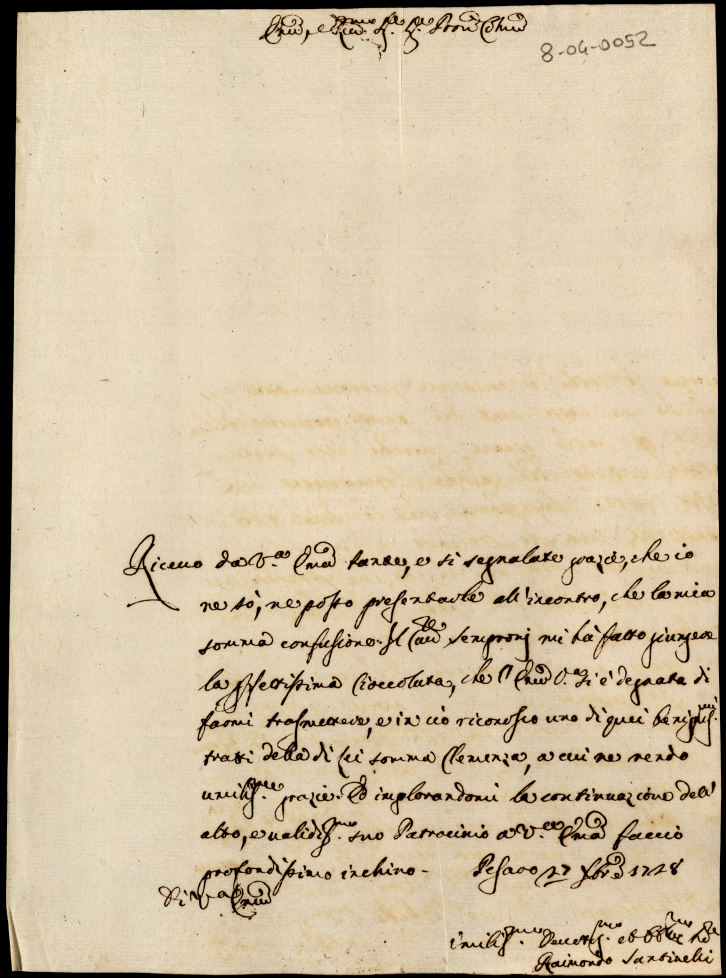 Em.o, e Rev.mo Sig.re Sig.re Pron Col.mo
8-04-0052
Ricevo da V.a Em.a tante, e si segnalate grazie, che io
ne sò, ne posso presentarle all'incontro, che la mia
somma confusione. Il Cav.re Sempronj mi hà fatto giungere
la pfettissima Cioccolata, che l'Em.a V.a si è degnata di
farmi trasmettere, e in ciò riconosco uno di quei benignis.mi
tratti della di Lei somma Clemenza, a cui ne rendo
umilis.me grazie. Ed implorandomi la continuazione dell'
alto, e validis.mo suo Patrocinio a V.a Em.a faccio
profondissimo inchino. Pesaro 27 Xbre 1728
Di V.a Em.a
Umilis.mo Devotis.mo ed Obb.mo
Raimondo Santinelli